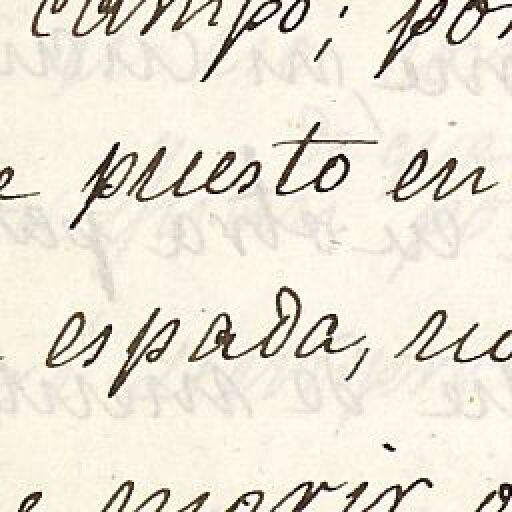 campo; por
e puesto en
espada, no
morir